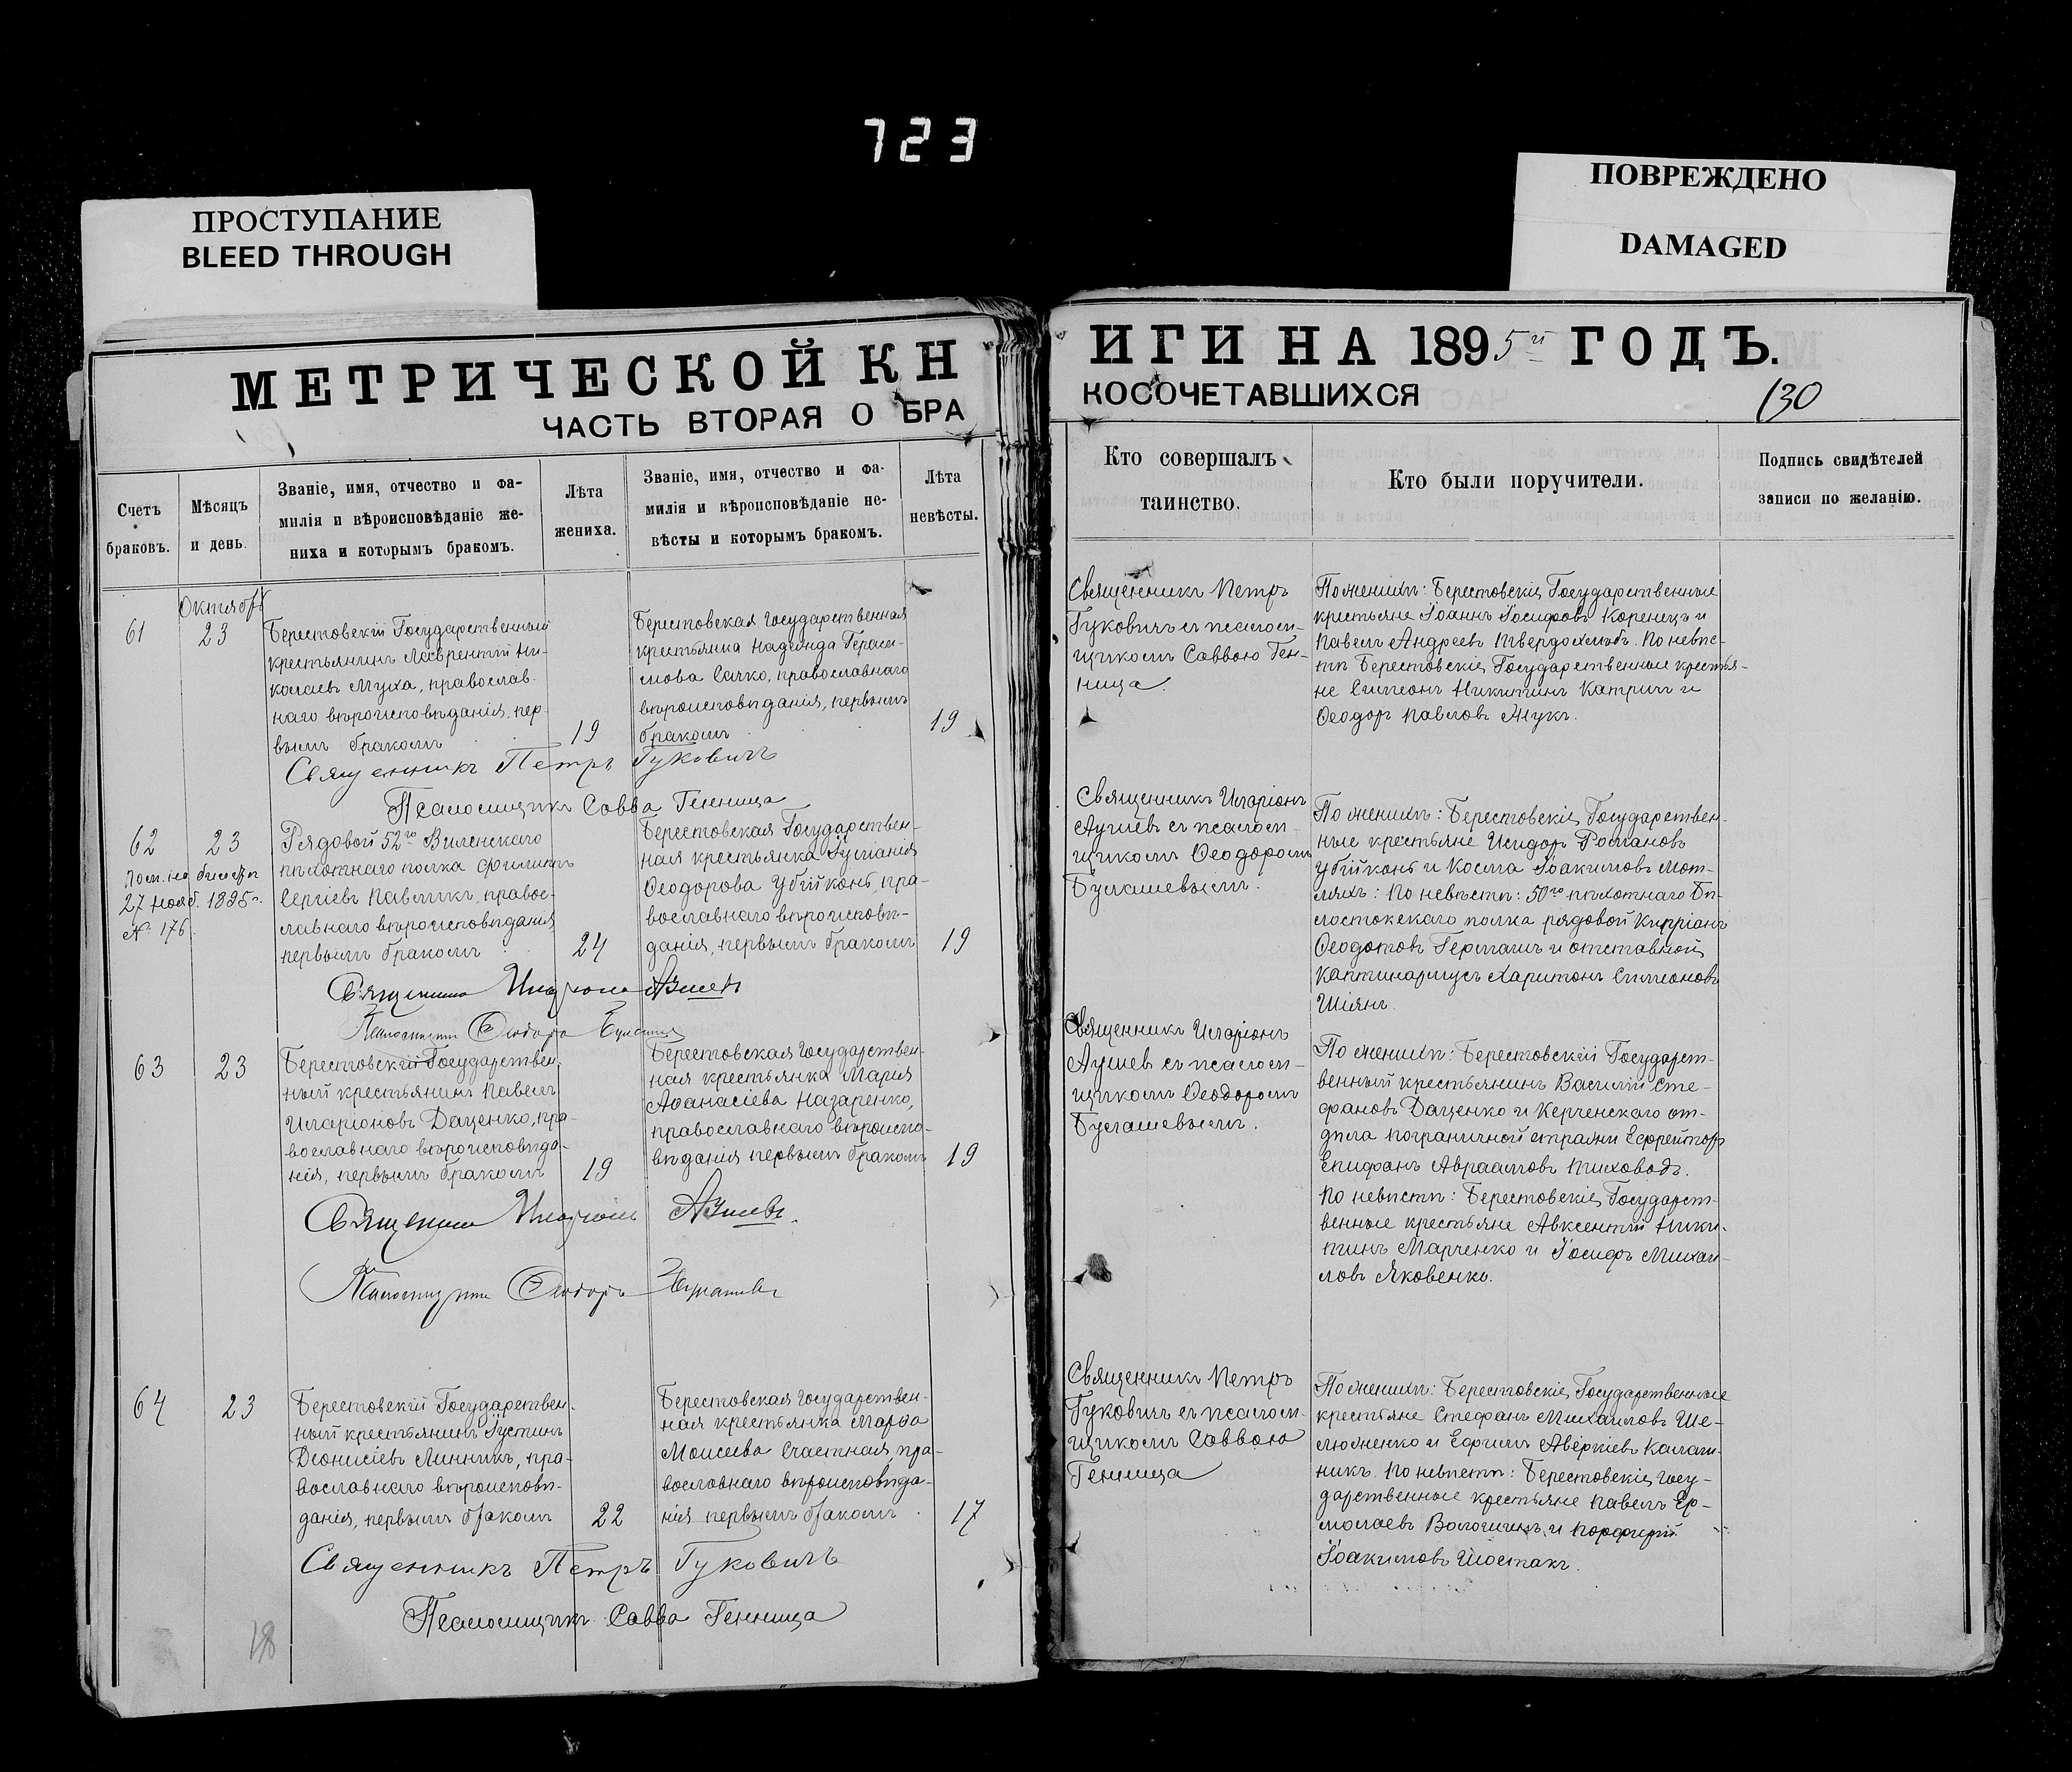 723
ПРОСТУПАНИЕ
BLEED THROUGH
ПОВРЕЖДЕНО
DAMAGED
МЕТРИЧЕСКОЙ КН
ЧАСТЬ ВТОРАЯ О БРА
Счетъ
браковъ.
Мѣсяцъ
и день.
Званіе, имя, отчество и фа-
милія и вѣроисповѣданіе же-
ниха и которымъ бракомъ.
Лѣта
жениха.
Званіе, имя, отчество и фа-
милія и вѣроисповѣданіе не-
вѣсты и которымъ бракомъ.
Лѣта
невѣсты.
ИГИ НА 1895й ГОДЪ.
КОСОЧЕТАВШИХСЯ
130
Кто совершалъ
таинство.
Кто были поручители.
Подпись свидѣтелей
записи по желанію.
61
Октябр
23
Берестовскій Государственный
крестьянинъ Лаврентій Ни-
колаевъ Муха, православ-
наго вѣроисповѣданія, пер-
вымъ бракомъ
19
Берестовская Государственная
крестьянка Надежда Гераси-
мова Сачко, православнаго
вѣроисповѣданія, первымъ
бракомъ
19
Священникъ Петръ Гуковичъ
Псаломщикъ Савва Генница
Священникъ Петръ
Гуковичъ съ псалом-
щикомъ Саввою Ген-
ница.
По женихѣ: Берестовскіе Государственные
крестьяне Іоаннъ Іосифовъ Коренецъ и
Павелъ Андреевъ Твердохлѣбъ. По невѣс-
тѣ Берестовскіе Государственные крестья-
не Симеонъ Никитинъ Катричъ и
Ѳеодоръ Павловъ Жукъ.
62
23
Пом. на билетѣ
27 нояб. 1895 г.
№ 176.
Рядовой 52го Виленскаго
пѣхотнаго полка Филиппъ
Сергіевъ Павликъ, правос-
лавнаго вѣроисповѣданія,
первымъ бракомъ
24
Берестовская Государствен-
ная крестьянка Іуліанія
Ѳеодорова Убійконь, пра-
вославнаго вѣроисповѣ-
данія, первымъ бракомъ
19
Священникъ Иларіонъ
Псаломщикъ Ѳеодоръ
Священникъ Иларіонъ
съ псалом-
щикомъ Ѳеодоромъ
По женихѣ: Берестовскіе Государствен-
ные крестьяне Исидоръ Романовъ
Убійконь и Косма Іоакимовъ Мот-
ляхъ: По невѣстѣ: 50го пѣхотнаго Бѣ-
лостокскаго полка рядовой Кипріанъ
Ѳеодотовъ Германъ и отставной
каптинармусъ Харитонъ Симеоновъ
Шіянъ.
63
23
Берестовскій Государствен-
ный крестьянинъ Павелъ
Иларіоновъ Даценко, пра-
вославнаго вѣроисповѣда-
нія, первымъ бракомъ
19
Берестовская Государствен-
ная крестьянка Марія
Аѳанасіева Назаренко,
православнаго вѣроиспо-
вѣданія первымъ бракомъ
19
Священникъ Иларіонъ
Псаломщикъ Ѳеодоръ
Священникъ Иларіонъ
съ псалом-
щикомъ Ѳеодоромъ
По женихѣ: Берестовскій Государст-
венный крестьянинъ Василій Сте-
фановъ Даценко и Керченскаго от-
дѣла пограничной стражи Ефрейторъ
Епифанъ Авраамовъ Тиховодъ.
По невѣстѣ: Берестовскіе Государст-
венные крестьяне Авксентій Ники-
тинъ Марченко и Іосифъ Михаи-
ловъ Яковенко.
64
23
Берестовскій Государствен-
ный крестьянинъ Іустинъ
Діонисіевъ Линникъ, пра-
вославнаго вѣроисповѣ-
данія, первымъ бракомъ
22
Берестовская Государствен-
ная крестьянка Марѳа
Моисеева Счастная, пра-
вославнаго вѣроисповѣда-
нія первымъ бракомъ
17
Священникъ Петръ Гуковичъ
Псаломщикъ Савва Генница
18
Священникъ Петръ
Гуковичъ съ псалом-
щикомъ Саввою
Генница
По женихѣ: Берестовскіе Государственные
крестьяне Стефанъ Михаиловъ Ше-
люженко и Ефимъ Аверкіевъ Калаш-
никъ. По невѣстѣ: Берестовскіе госу-
дарственные крестьяне Павелъ Ер-
молаевъ Волошинъ и Порфирій
Іоакимовъ Шостакъ.